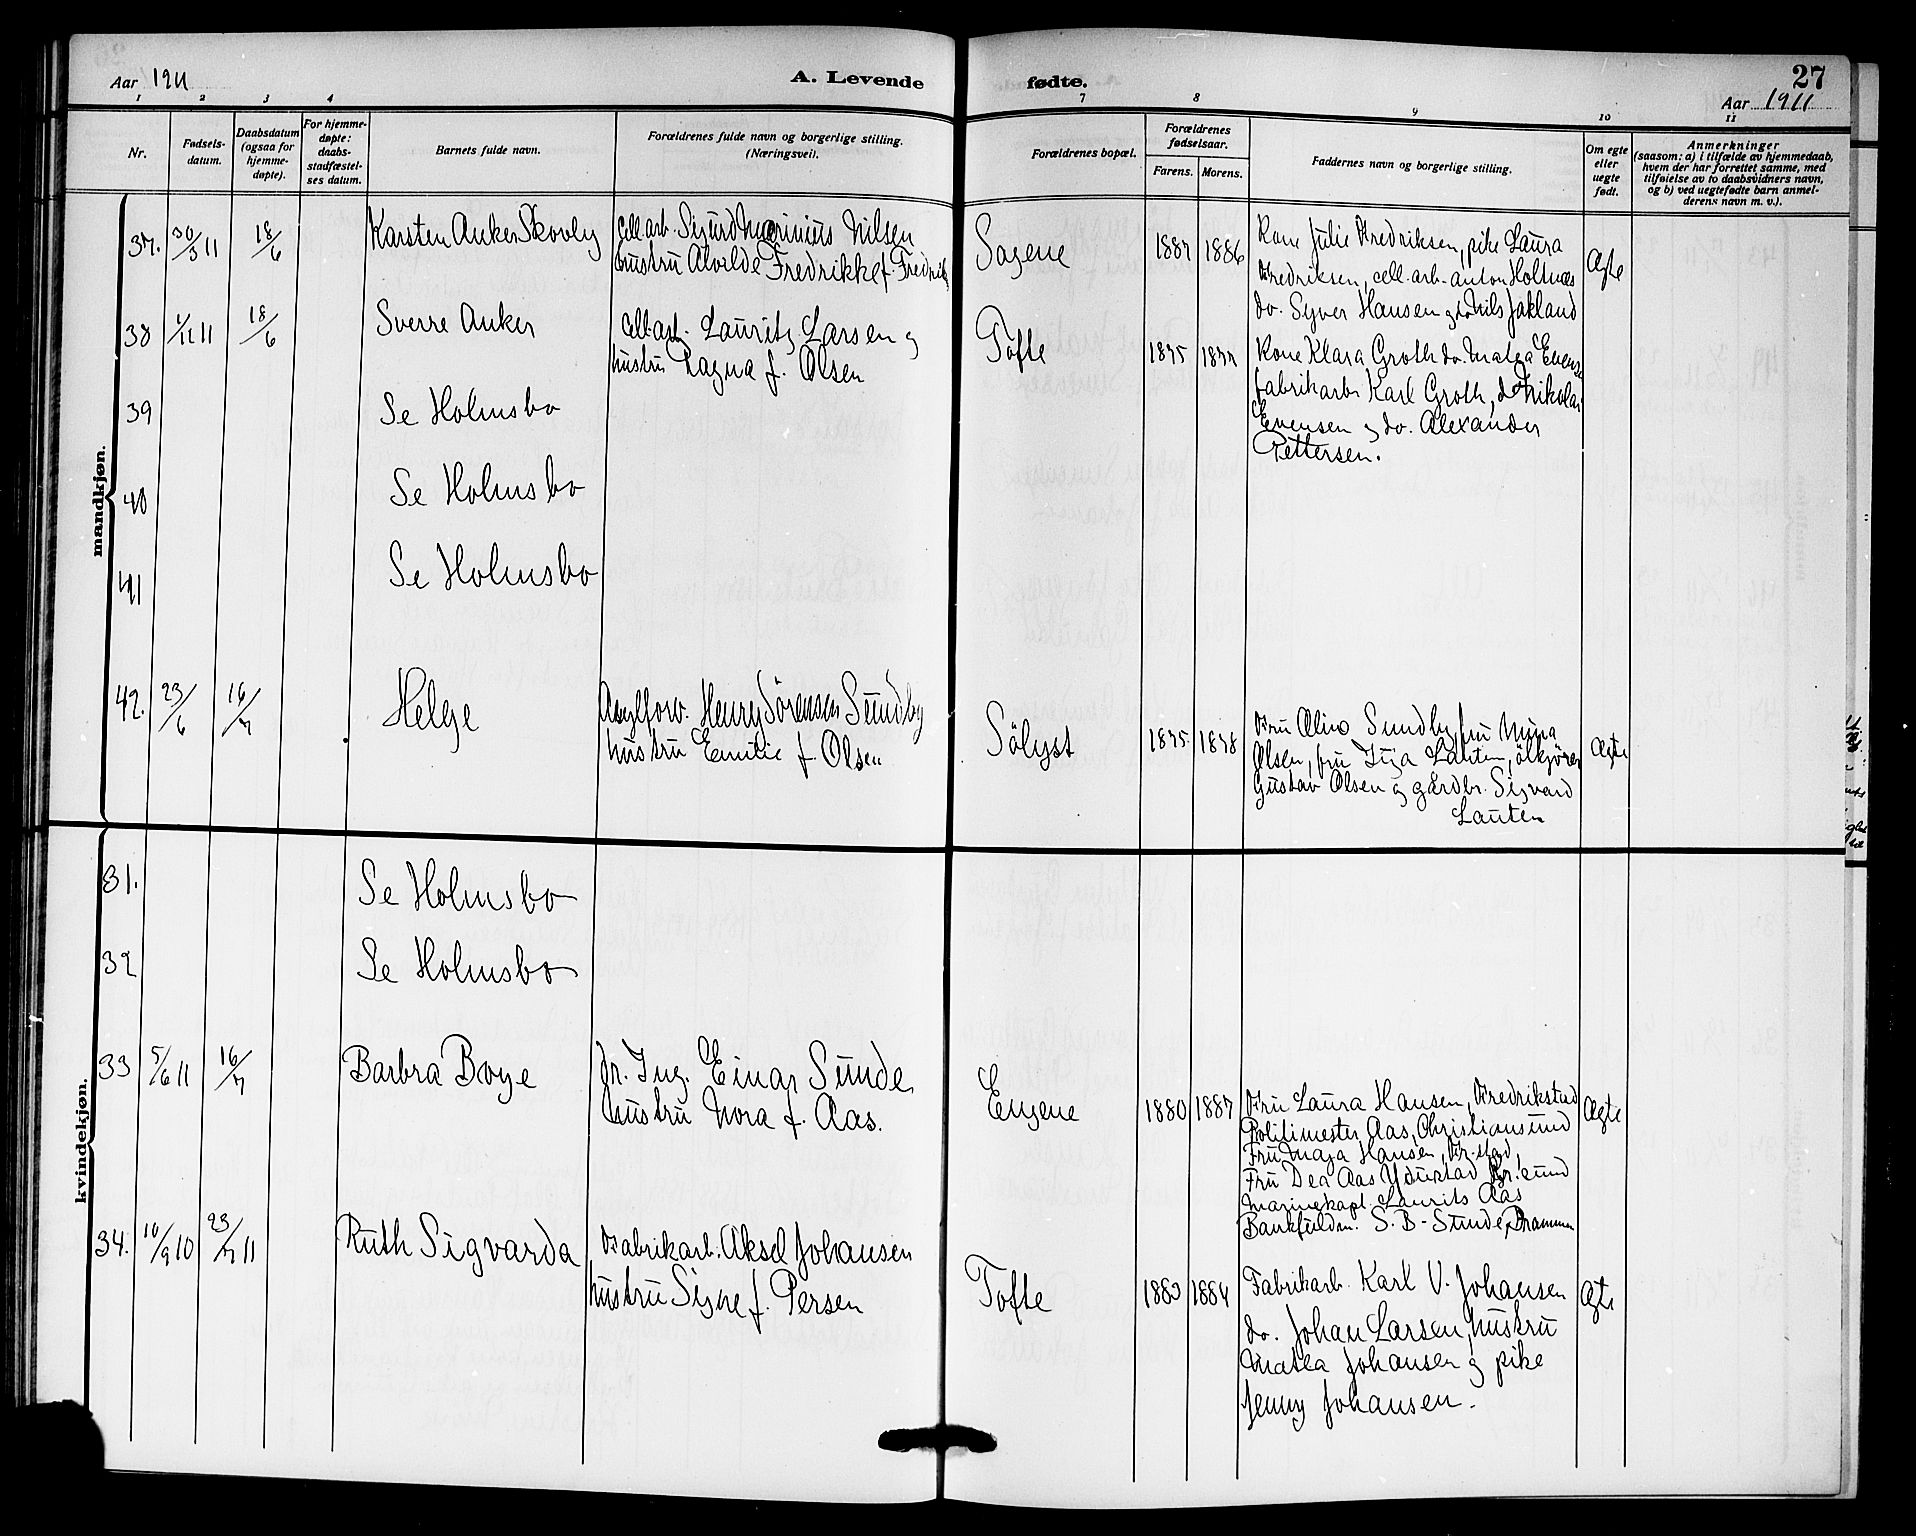 Aar 1911
A. Levende
fødte.
27
Aar 1911
1 2 3 4
7 8 9 10 11
Nr.
Fødsels-
datum.
Daabsdatum
(ogsaa for
hjemme-
døpte).
For hjemme-
døpte:
daabs-
stadfæstel-
ses datum.
Barnets fulde navn.
Forældrenes fulde navn og borgerlige stilling.
(Næringsvei).
Forældrenes bopæl.
Forældrenes
fødselsaar.
Farens. Morens.
Faddernes navn og borgerlige stilling.
Om egte
eller
uegte
født.
Anmerkninger
(saasom: a) i tilfælde av hjemmedaab,
hvem der har forrettet samme, med
tilføielse av to daabsvidners navn,
og b) ved uegtefødte barn anmel-
derens navn m. v.).
mandkjøn.
37. 30/3 11 18/6 Karsten Anker Skovly
Cell.arb. Sigurd Marinius Nilsen
hustru Alvilde Fredrikke f. Fredrik
Sagene 1887 1886
Kone Julie Fredriksen, pike Laura
Fredriksen, cell.arb. Anton Holtnæs
do. Syver Hansen og do Nils Jakland
Ægte
38 11 18/6 Sverre Anker
Cell.arb. Lauritz Larsen og
hustru Ragna f. Olsen
Tofte 1875 1877
Kone Klara Groth do. Matea Evense
fabrikarb. Karl Groth, do Nikolai
Evensen og do. Alexander
Pettersen.
39 Se Holmsbo
40 Se Holmsbo
41 Se Holmsbo
42. 23/6 16/7 Helge
Asylforv. Henry Sörensen Sundby
hustru Emilie f. Olsen
Sölyst 1875 1878
Fru Olivo Sundby, fru Mina
Olsen, fru Inga Lauten, ölkjörer
Gustav Olsen og gårdbr. Sigvard
Lauten
Ægte
kvindekjøn.
31. Se Holmsbo
32 Se Holmsbo
33 5/6 11 16/7 Barbra Boye
Dr. Ing. Einar Sunde
hustru Nora f. Aas.
Engene 1880 1887
Fru Laura Hansen, Fredrikstad
Politimester Aas, Christiansund
Fru Maja Hansen, Fr.stad,
Fru Dea Aas Kr.sund
Marinekapt. Laurits Aas
Bankfuldm. S. B. Sunde, Drammen
Ægte
34. 10/9 10 23/7 11 Ruth Sigvarda
Fabrikarb. Aksel Johansen
hustru Signe f. Persen
Tofte 1883 1884
Fabrikarb. Karl V. Johansen
do. Johan Larsen, hustru
Matea Johansen og pike
Jenny Johansen.
Ægte